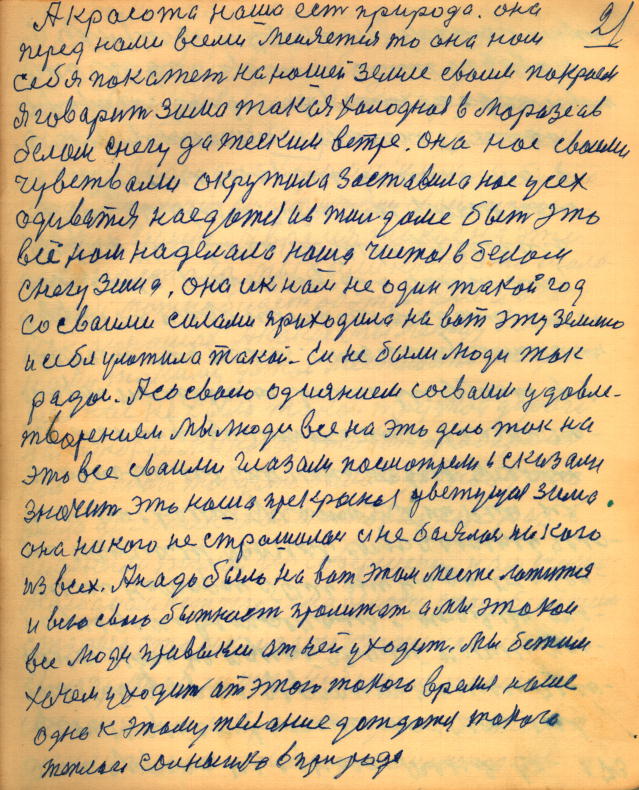 А красота наша ест природа. она 21
перед нами всеми меняется то она нам
себя покажет на нашей земле своим покроем
я говарит зима такая холодная в морозе ав
белом снегу да жеским ветре. она нас своими
чуветвами окружила заставила нас усех
одиватся наедатся и в тил доме быт это
всё нам наделала наша чистая в белом
снегу зима, она и к нам не один такой год
со сваими силами приходила на вот эту землю
и себя уложила такой. Ей не были люди так
рады. А со своею одиянием сосваим удовле-
творением мы люди все на это дело так на
это все сваими глазами посмотрели и сказали
значит это наша прекрасная цветущая зима.
она никого не страшилас и не баялас никого
из всех. А надо было на вот этом месте латится
и всю свою бытност пролижат а мы этакои
все люди правыкли от ней уходит. Мы бежим
хочем уходит ат этого такого время наше
одно к этому желание дождатся такого
теплаго солнышко в природе